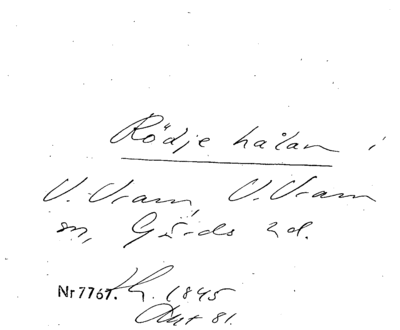 Rödje hålan i
V. Vram, V. Vram
sn, Gärds hd.
Nr 7767. 1845
Akt 81.